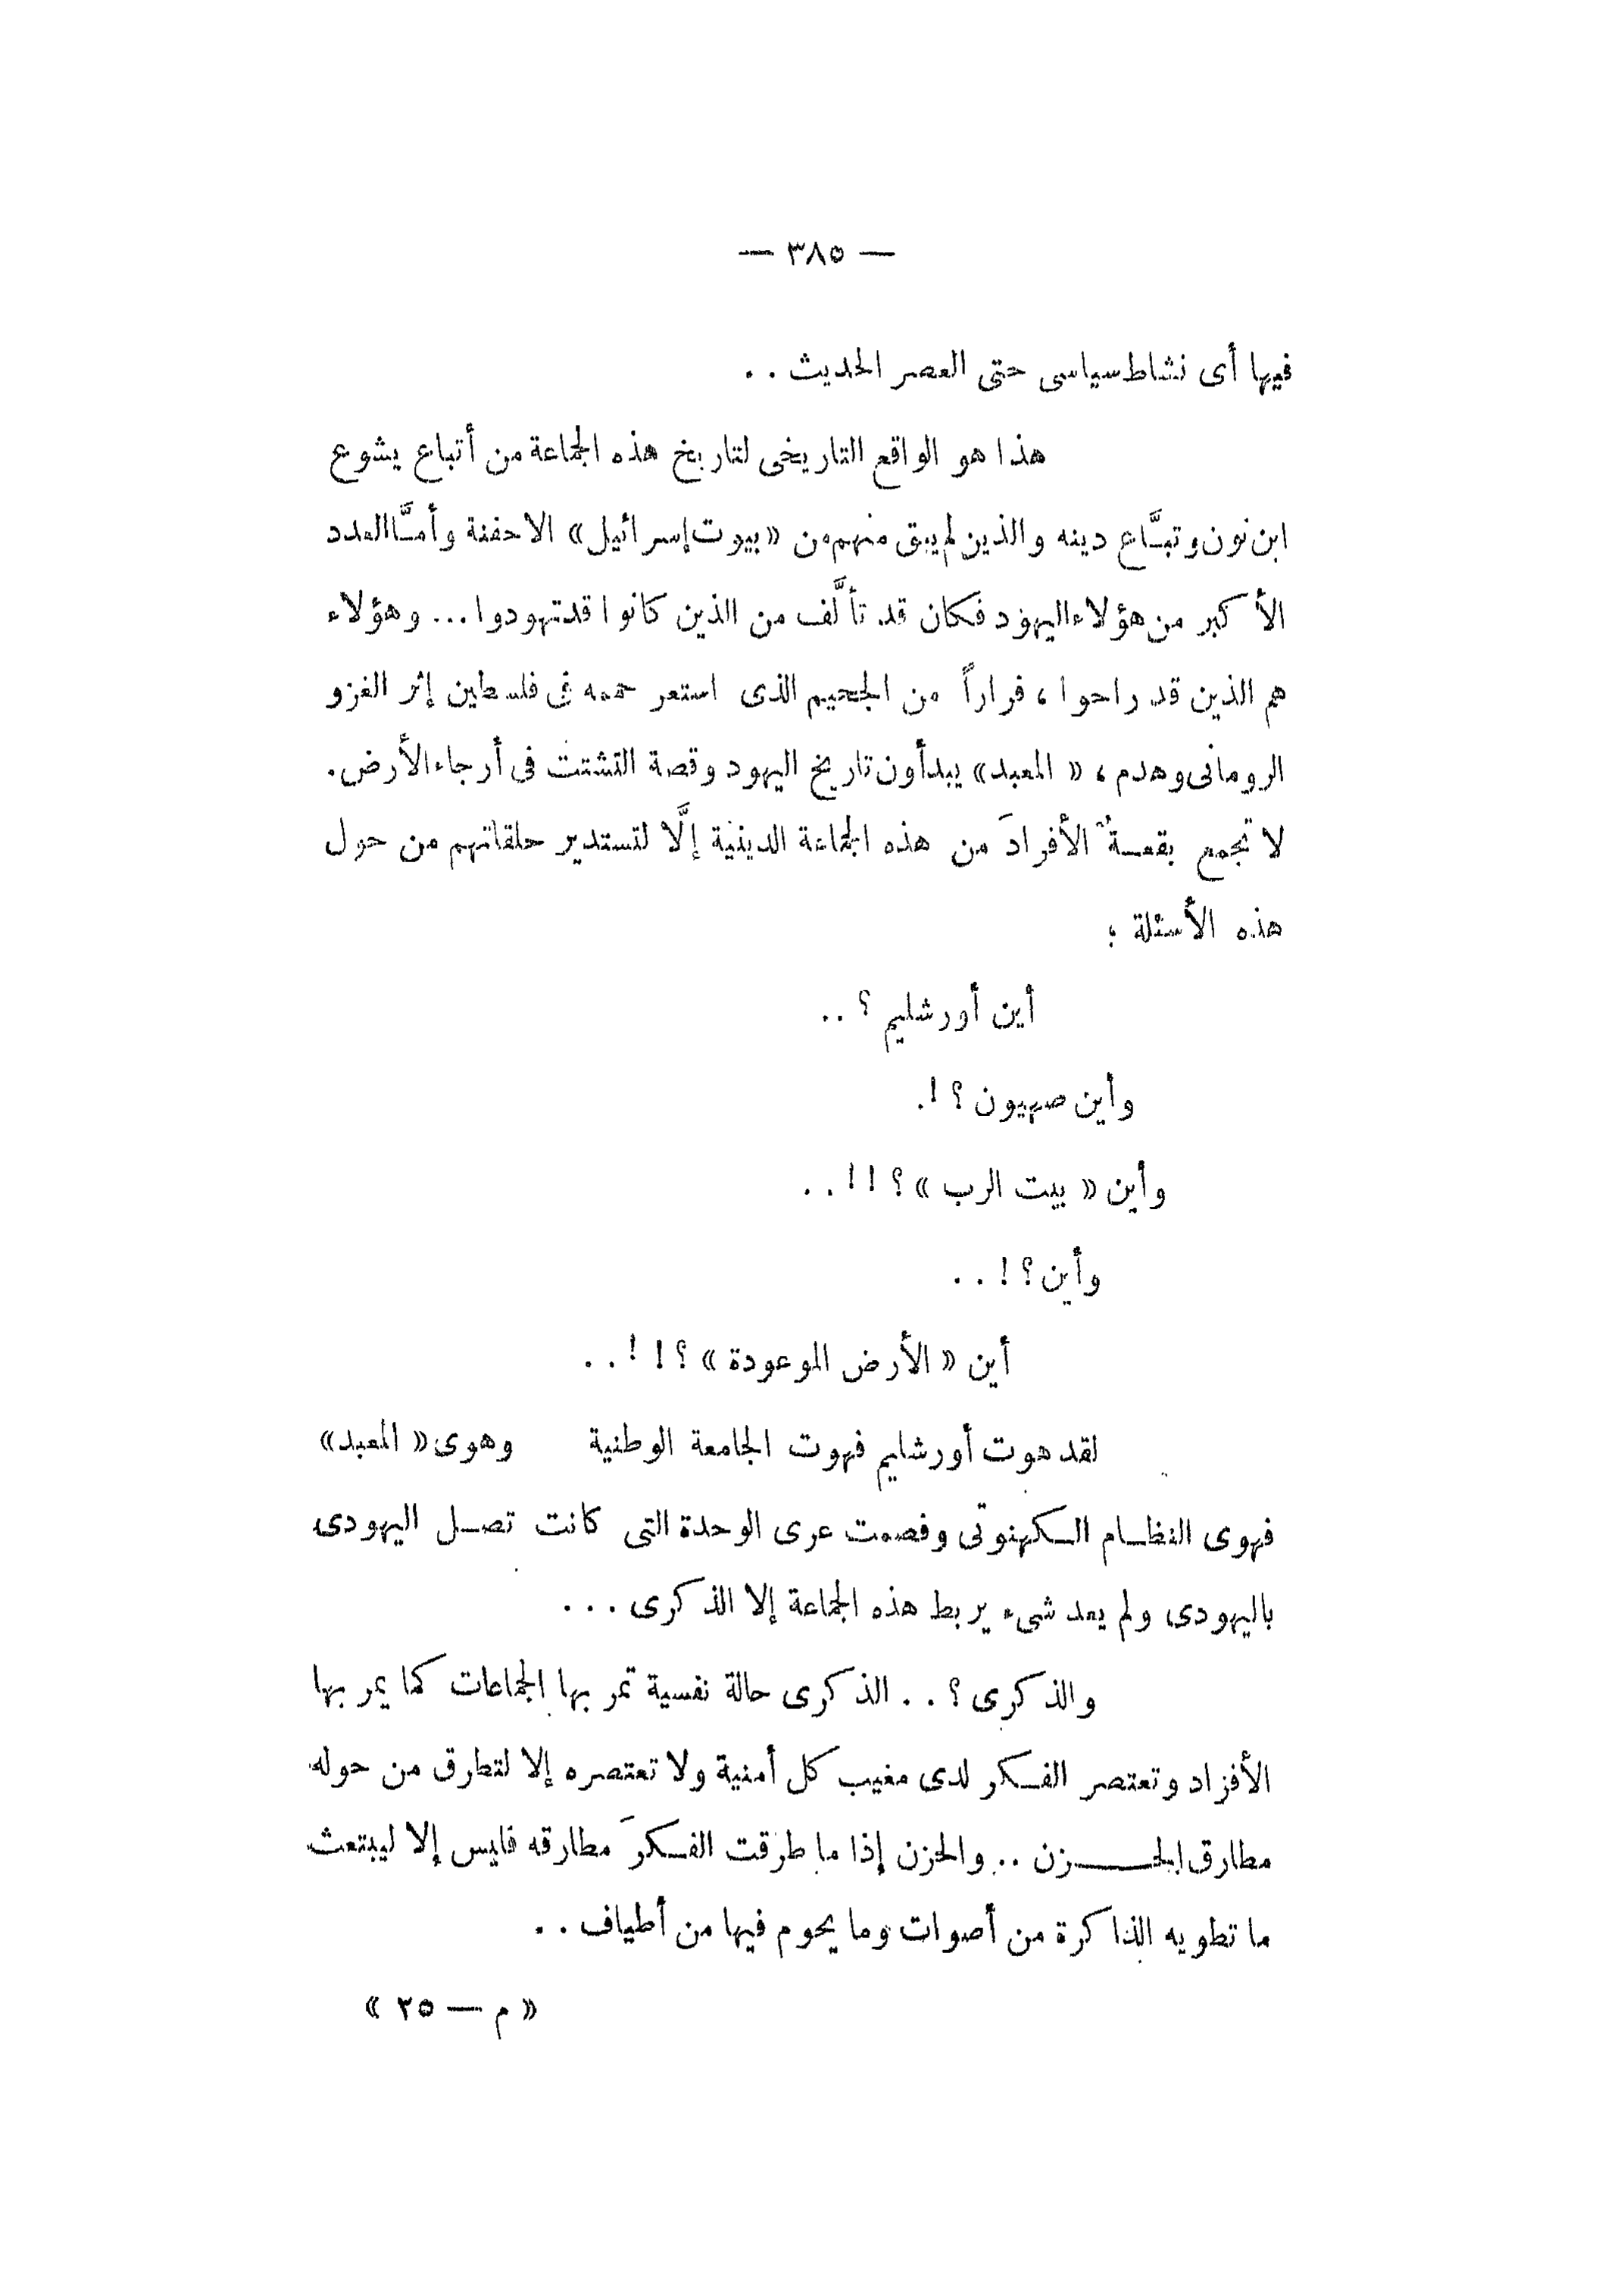 — ٣٨٥ —
فيها أى نشاط سياسى حتى العصر الحديث . .
هذا هو الواقع التاريخى لتاريخ هذه الجماعة من أتباع يشوع
ابن نون وتبَّاع دينه والذين لم يبق منهم من « بيوت إسرائيل » الا حفنة وأمَّا العدد
الأكبر من هؤلاء اليهود فكان قد تألَّف من الذين كانوا قد تهودوا ... وهؤلاء
هم الذين قد راحوا ، فراراً من الجحيم الذى استعر حممه فى فلسطين إثر الغزو
الرومانى وهدم ، « المعبد » يبدأون تاريخ اليهود وقصة التشتت فى أرجاء الأرض .
لا تجمع بقعةٌ الأفرادَ من هذه الجماعة الدينية إلَّا لتستدير حلقاتهم من حول
هذه الأسئلة :
أين أورشليم ؟ . .
وأين صهيون ؟ ! .
وأين « بيت الرب » ؟ ! ! . .
وأين ؟ ! . .
أين « الأرض الموعودة » ؟ ! ! . .
لقد هوت أورشليم فهوت الجامعة الوطنية وهوى « المعبد »
فهوى النظام الكهنوتى وفصمت عرى الوحدة التى كانت تصل اليهودى
باليهودى ولم يعد شىء يربط هذه الجماعة إلا الذكرى . . .
والذكرى ؟ . . الذكرى حالة نفسية تمر بها الجماعات كما يمر بها
الأفراد وتعتصر الفكر لدى مغيب كل أمنية ولا تعتصره إلا لتطرق من حوله
مطارق الحزن . . والحزن إذا ما طرقت الفكرَ مطارقه فليس إلا ليبتعث
ما تطويه الذاكرة من أصوات وما يحوم فيها من أطياف . .
« م — ٢٥ »